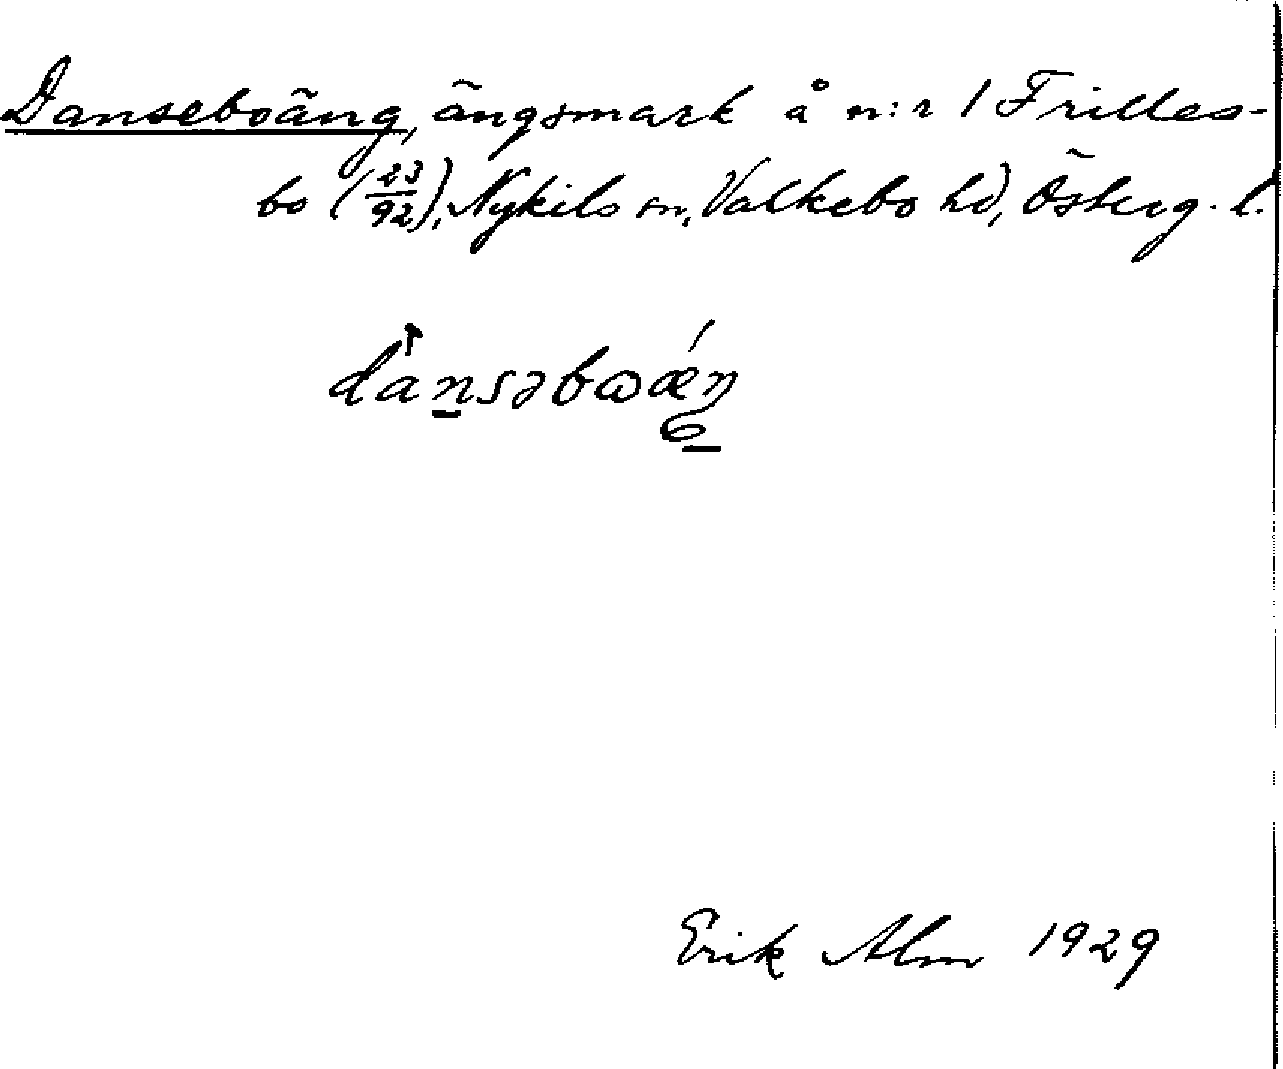 Danseboäng, ängsmark å n:r 1 Frilles-
bo (23/92), Nykils sn, Valkebo hd, Österg. l.
dansəbωǽŋ
Erik Alm 1929